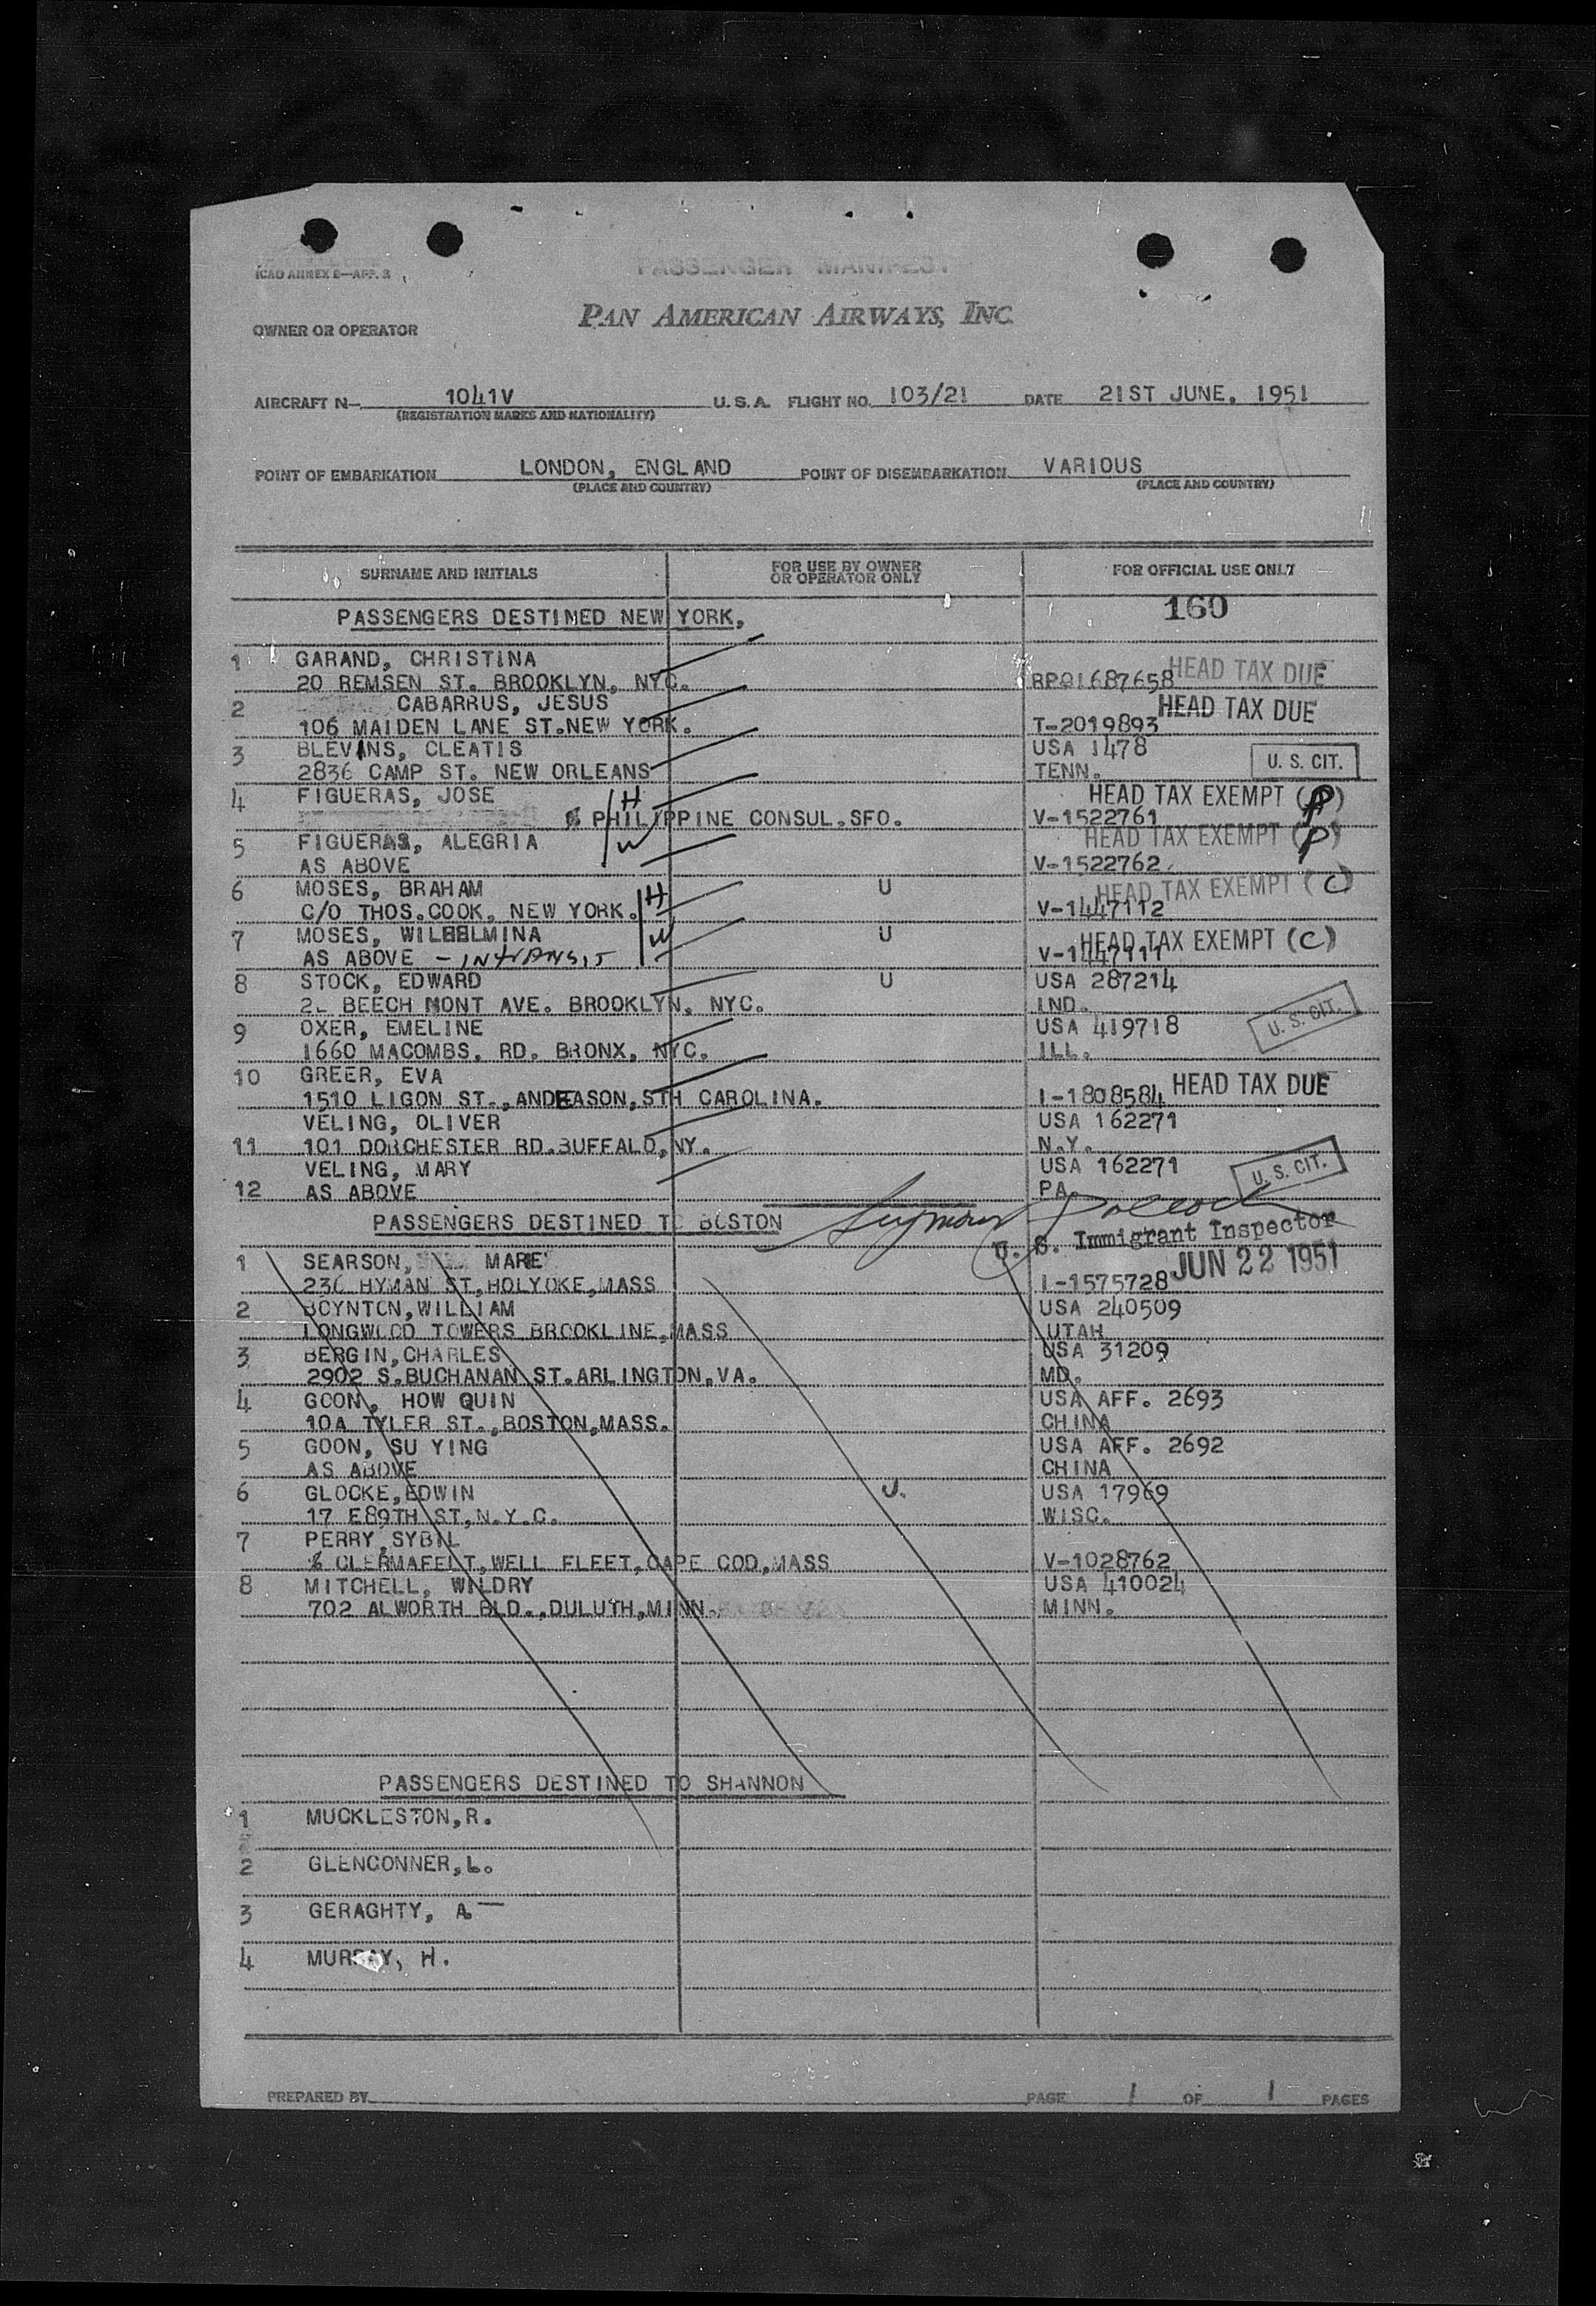 ICAO ANNEX 8—APP. 3
PASSENGER MANIFEST
OWNER OR OPERATOR
PAN AMERICAN AIRWAYS, INC.
AIRCRAFT N— 1041V U.S.A. FLIGHT NO. 103/21 DATE 21ST JUNE, 1951
(REGISTRATION MARKS AND NATIONALITY)
POINT OF EMBARKATION LONDON, ENGLAND POINT OF DISEMBARKATION VARIOUS
(PLACE AND COUNTRY) (PLACE AND COUNTRY)
SURNAME AND INITIALS FOR USE BY OWNER OR OPERATOR ONLY FOR OFFICIAL USE ONLY
160
PASSENGERS DESTINED NEW YORK,
1 GARAND, CHRISTINA
20 REMSEN ST. BROOKLYN, NYC. RP01687658 HEAD TAX DUE
2 CABARRUS, JESUS
106 MAIDEN LANE ST.NEW YORK. T-2019893 HEAD TAX DUE
3 BLEVINS, CLEATIS USA 1478
2836 CAMP ST. NEW ORLEANS TENN. U. S. CIT.
4 FIGUERAS, JOSE H HEAD TAX EXEMPT (P)
% PHILIPPINE CONSUL.SFO. V-1522761
5 FIGUERAS, ALEGRIA W HEAD TAX EXEMPT (P)
AS ABOVE V-1522762
6 MOSES, BRAHAM H U HEAD TAX EXEMPT (C)
C/O THOS.COOK. NEW YORK. V-1447112
7 MOSES, WILHELMINA W U HEAD TAX EXEMPT (C)
AS ABOVE - INTRANSIT V-1447111
8 STOCK, EDWARD U USA 287214
BEECH MONT AVE. BROOKLYN, NYC. IND.
9 OXER, EMELINE USA 419718 U. S. CIT.
1660 MACOMBS. RD. BRONX, NYC. ILL.
10 GREER, EVA
1510 LIGON ST.,ANDEASON,STH CAROLINA. I-1808584 HEAD TAX DUE
VELING, OLIVER USA 162271
11 101 DORCHESTER RD.BUFFALO,NY. N.Y.
VELING, MARY USA 162271 U. S. CIT.
12 AS ABOVE PA.
PASSENGERS DESTINED TO BOSTON Seymour Pollock
U. S. Immigrant Inspector
1 SEARSON, MARE JUN 22 1951
236 HYMAN ST,HOLYOKE,MASS I-1575728
2 BOYNTON,WILLIAM USA 240509
LONGWOOD TOWERS BROOKLINE,MASS UTAH
3 BERGIN,CHARLES USA 31209
2902 S.BUCHANAN ST.ARLINGTON,VA. MD.
4 GOON, HOW QUIN USA AFF. 2693
10A TYLER ST.,BOSTON,MASS. CHINA
5 GOON, SU YING USA AFF. 2692
AS ABOVE CHINA
6 GLOCKE,EDWIN U. USA 17969
17 E89TH ST,N.Y.C. WISC.
7 PERRY,SYBIL
% CLERMAFELT,WELL FLEET,CAPE COD,MASS V-1028762
8 MITCHELL, WILDRY USA 410024
702 ALWORTH BLD.,DULUTH,MINN. MINN.
PASSENGERS DESTINED TO SHANNON
1 MUCKLESTON,R.
2 GLENCONNER,L.
3 GERAGHTY, A.
4 MURRAY, H.
PREPARED BY PAGE 1 OF 1 PAGES